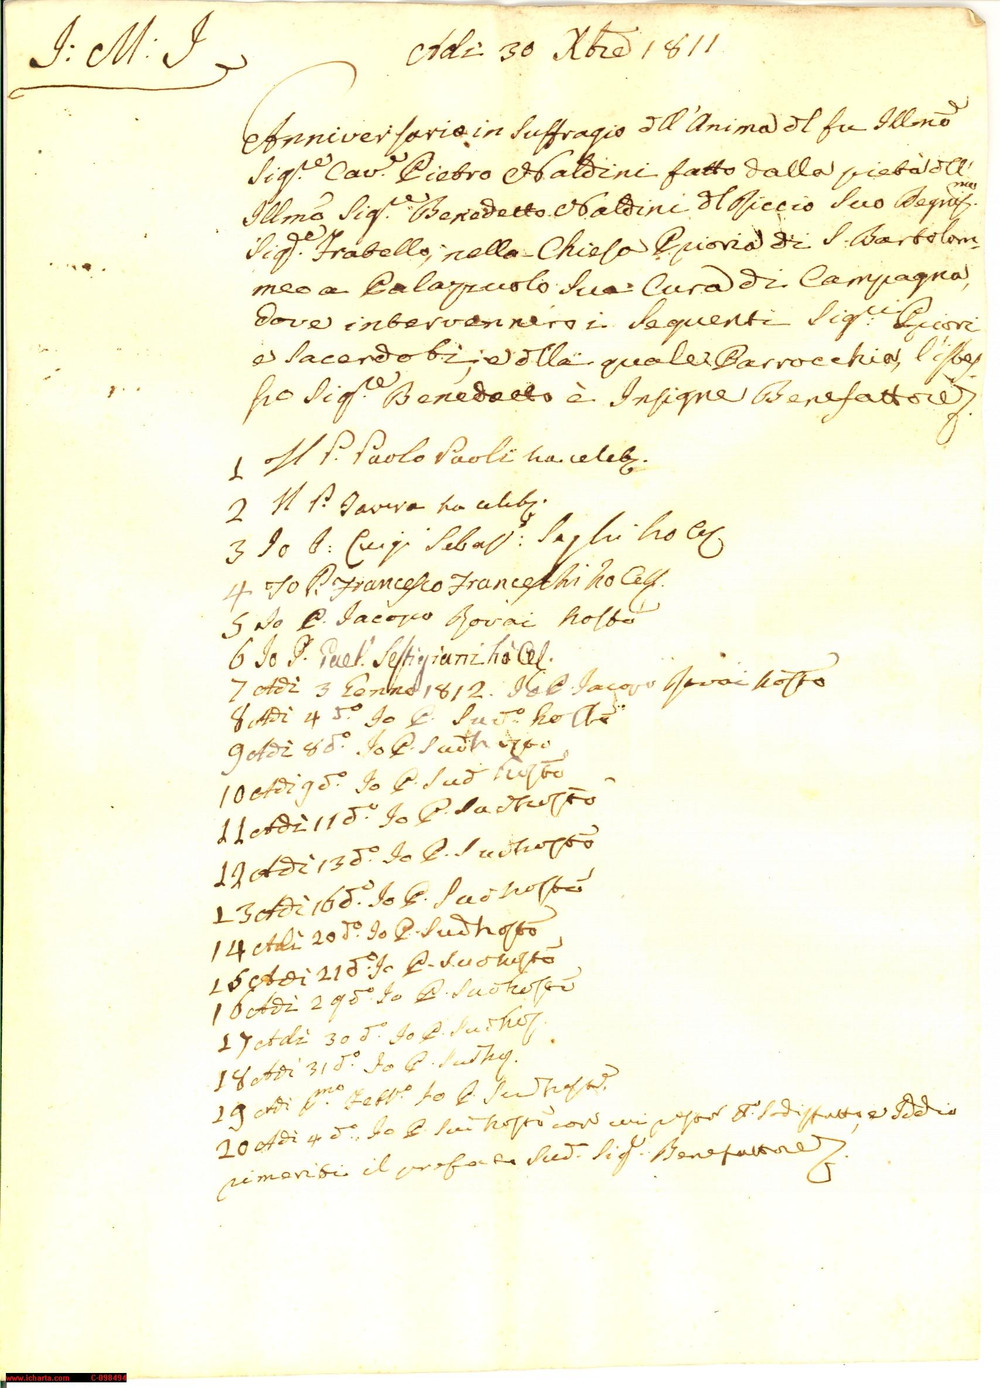 J: M: J
Adi 30 Xbre 1811
Anniversario in Suffragio dll' Anima dl fu Illmo
Sigre Cavre Pietro Naldini fatto dalla pietà dll'
Illmo Sigre Benedetto Naldini dl Riccio Suo Degnissmo
Sigre Fratello, nella Chiesa Prioria di S. Bartolom-
meo a Palazzuolo Sua Cura di Campagna,
dove intervennero i Sequenti Sigri Priori
e Sacerdoti, e dlla quale Parrocchia, l'istes
so Sigre Benedetto è Insigne Benefattore
1 Il P. Paolo Paoli ha celebo.
2 Il P. ha celebo.
3 Io P: Luigi Sebasno: ho Cel
4 Io P. Francesco Franceschi ho Cell.
5 Io P. Jacopo Bovai ho sto
6 Io P. Gaelo Sestigiani hò Cel.
7 Adi 3 Genno 1812. Io P. Jacopo Bovai hò sto
8 Adi 4 do Io P. Sudo ho sto
9 Adi 8 do. Io P. Sud ho sto
10 Adi 9 do. Io P. Sud ho sto
11 Adi 11 do. Io P. Sud ho sto
12 Adi 13 do. Io P. Sud ho sto
13 Adi 16 do. Io P. Sud ho sto
14 Adi 20 do. Io P. Sud ho sto
15 Adi 21 do. Io P. Sud ho sto
16 Adi 29 do. Io P. Sud ho sto
17 Adi 30 do. Io P. Sud ho s.
18 Adi 31 do. Io P. Sud ho
19 Adi pmo Febbo Io P. Sud ho sto
20 Adi 4 do. Io P. Sud ho sto con cui resto do Sodisfatto, e Iddio
rimeriti il prefato Sud. Sigre Benefattore
www.icharta.com C-098494